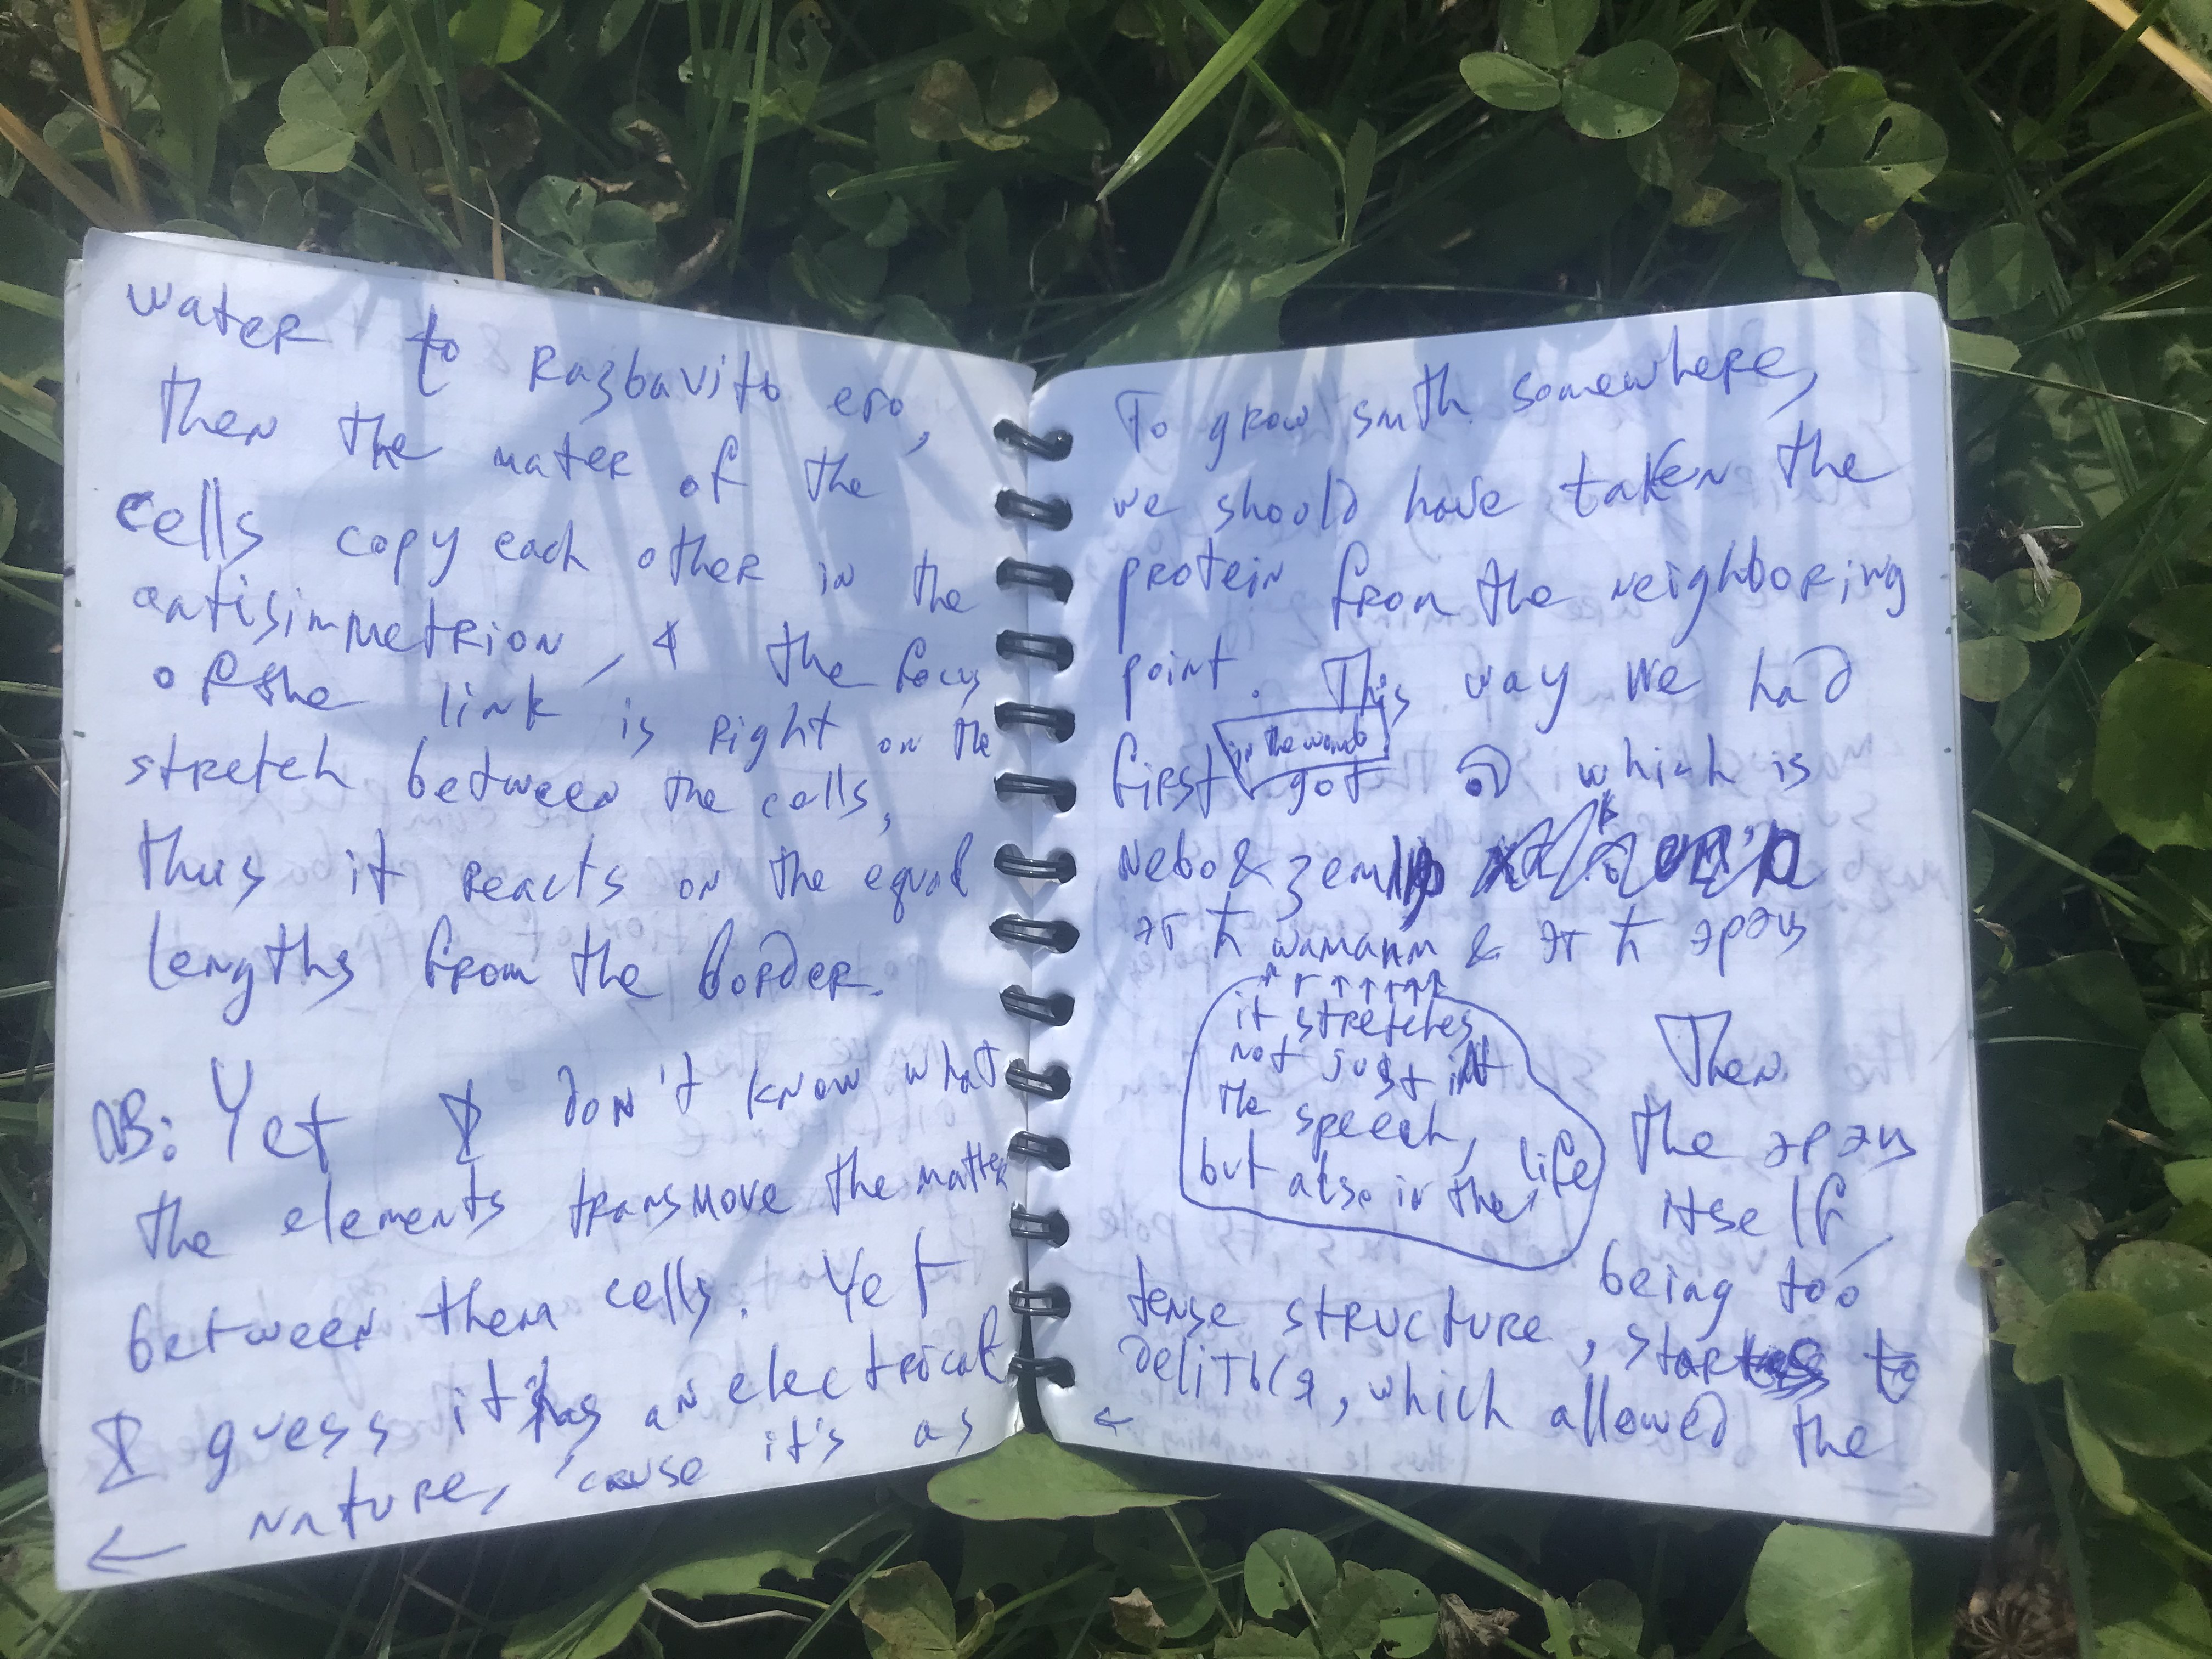 water to razbavitь ero,
then the mater of the
cells copy each other in the
antisimmetrion, & the focus
of the link is right on the
stretch between the cells,
this it reacts on the equal
lengths from the border.
OB: Yet I don't know what
the elements transmove the matter
between them cells. Yet
I guess it's an electrical
← nature, cause it's as
To grow smth somewhere,
we should have taken the
protein from the neighboring
point. This way we had
in the womb
first got a which is
nebo&zemlь
эт ħ wumanm & эт ħ эрэн
it stretches
not just in
the speech,
but also in the life
Then
the эрэн
itself,
being too
tense structure, starts to
delitьcя, which allowed the
←